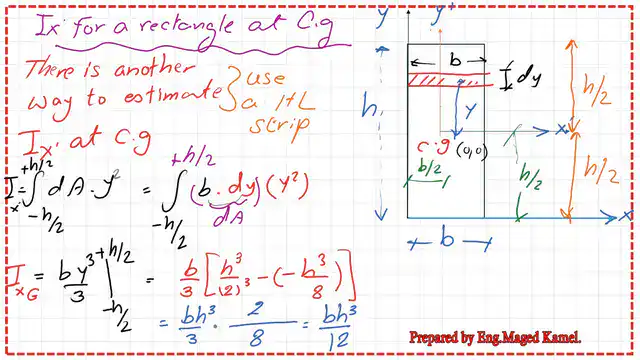 Ix' for a rectangle at C.g
There is another
way to estimate
Ix' at C.g
use
a HL
strip
Ix' = ∫ +h/2 -h/2 dA · y² = ∫ +h/2 -h/2 (b · dy)(y²)
dA
IxG = by³/3 | +h/2 -h/2 = b/3 [h³/(2)³ - (-h³/8)]
= bh³/3 · 2/8 = bh³/12
y y'
b
dy
h
y
h/2
x'
c.g (0,0)
b/2
h/2
h/2
x
b
Prepared by Eng.Maged Kamel.